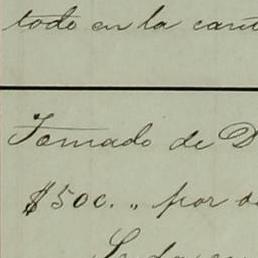 todo en la cant
Tomado de D
$500. „ por d